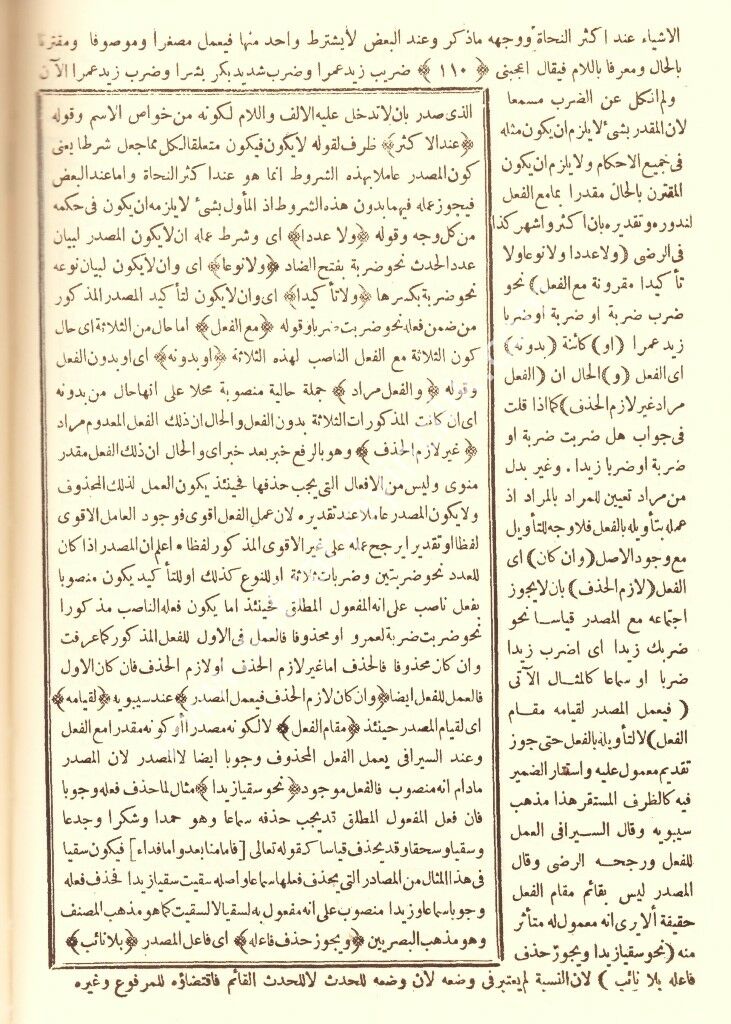 الاشياء عند اكثر النحاة ووجهه ماذكر وعند البعض لايشترط واحد منها فيعمل مصغرا وموصوفا ومقترنا
بالحال ومعرفا باللام فيقال اعجبنى ﴿ ١١٠ ﴾ ضريب زيد عمرا وضرب شديد بكر بشرا وضرب زيد عمرا الآن
ولم انكل عن الضرب مسمعا
لان المقدر بشئ لايلزم ان يكون مثله
فى جميع الاحكام ولا يلزم ان يكون
المقترن بالحال مقدرا بما مع الفعل
لندوره وتقديره بان اكثر واشهر كذا
فى الرضى (ولاعددا ولانوعا ولا
تأكيدا مقرونة مع الفعل) نحو
ضرب ضربة او ضربة او ضربا
زيد عمرا (او) كائنة (بدونه)
اى الفعل (و) الحال ان (الفعل
مراد غير لازم الحذف) كما اذا قلت
فى جواب هل ضربت ضربة او
ضربة او ضربا زيدا . وغير بدل
من مراد تعيين للمراد بالمراد اذ
عمله بتأويله بالفعل فلاوجه للتأويل
مع وجود الاصل (وان كان) اى
الفعل (لازم الحذف) بان لايجوز
اجتماعه مع المصدر قياسا نحو
ضربك زيدا اى اضرب زيدا
ضربا او سماعا كالمثال الآتى
( فيعمل المصدر لقيامه مقام
الفعل) لالتأويله بالفعل حتى جوز
تقديم معمول عليه واستتار الضمير
فيه كالظرف المستقر هذا مذهب
سيبويه وقال السيرافى العمل
للفعل ورجحه الرضى وقال
المصدر ليس بقائم مقام الفعل
حقيقة ألايرى انه معمول له متأثر
منه (نحو سقيا زيدا ويجوز حذف
الذى صدر بان لاتدخل عليه الالف واللام لكونه من خواص الاسم وقوله
﴿عند الاكثر﴾ ظرف لقوله لايكون فيكون متعلقا لكل مما جعل شرطا يعنى
كون المصدر عاملا بهذه الشروط انما هو عند اكثر النحاة واما عند البعض
فيجوز عمله فيهما بدون هذه الشروط اذ المأول بشئ لايلزمه ان يكون فى حكمه
من كل وجه وقوله ﴿ولا عددا﴾ اى وشرط عمله ان لايكون المصدر لبيان
عدد الحدث نحو ضربة بفتح الضاد ﴿ولانوعا﴾ اى وان لايكون لبيان نوعه
نحو ضربة بكسرها ﴿ولاتأكيدا﴾ اى وان لايكون لتأكيد المصدر المذكور
من ضمن فعله نحو ضربت ضربا وقوله ﴿مع الفعل﴾ اما حال من الثلاثة اى حال
كون الثلاثة مع الفعل الناصب لهذه الثلاثة ﴿او بدونه﴾ اى او بدون الفعل
وقوله ﴿والفعل مراد﴾ جملة حالية منصوبة محلا على انها حال من بدونه
اى ان كانت المذكورات الثلاثة بدون الفعل والحال ان ذلك الفعل المعدوم مراد
﴿ غير لازم الحذف ﴾ وهو بالرفع خبر بعد خبر اى والحال ان ذلك الفعل مقدر
منوى وليس من الافعال التى يجب حذفها فحينئذ يكون العمل لذلك المحذوف
ولايكون المصدر عاملا عند تقديره لان عمل الفعل اقوى فوجود العامل الاقوى
لفظا او تقديرا يرجح عمله على غير الاقوى المذكور لفظا * اعلم ان المصدر اذا كان
للعدد نحو ضربتين وضربات ثلاثة او للنوع كذلك او للتأكيد يكون منصوبا
بفعل ناصب على انه المفعول المطلق فحينئذ اما يكون فعله الناصب مذكورا
نحو ضربت ضربة لعمرو او محذوفا فالعمل فى الاول للفعل المذكور كما عرفت
وان كان محذوفا فالحذف اما غير لازم الحذف او لازم الحذف فان كان الاول
فالعمل للفعل ايضا ﴿وان كان لازم الحذف فيعمل المصدر﴾ عند سيبويه ﴿لقيامه﴾
اى لقيام المصدر حينئذ ﴿مقام الفعل﴾ لالكونه مصدرا أو كونه مقدرا مع الفعل
وعند السيرافى يعمل الفعل المحذوف وجوبا ايضا لاالمصدر لان المصدر
مادام انه منصوب فالفعل موجود ﴿نحو سقيا زيدا﴾ مثال لما حذف فعله وجوبا
فان فعل المفعول المطلق قد يجب حذفه سماعا وهو حمدا وشكرا وجدعا
وسقيا وسحقا وقد يحذف قياسا كقوله تعالى [فاما منا بعد واما فداء] فيكون سقيا
فى هذا المثال من المصادر التى يحذف فعلها سماعا واصله سقيت سقيا زيدا فحذف فعله
وجوبا سماعا وزيدا منصوب على انه مفعول به لسقيا لالسقيت كما هو مذهب المصنف
وهو مذهب البصريين ﴿ويجوز حذف فاعله﴾ اى فاعل المصدر ﴿بلانائب﴾
فاعله بلا نائب ) لان النسبة لم يعتبر فى وضعه لان وضعه للحدث لاللحدث القائم فاقتضاؤه للمرفوع وغيره